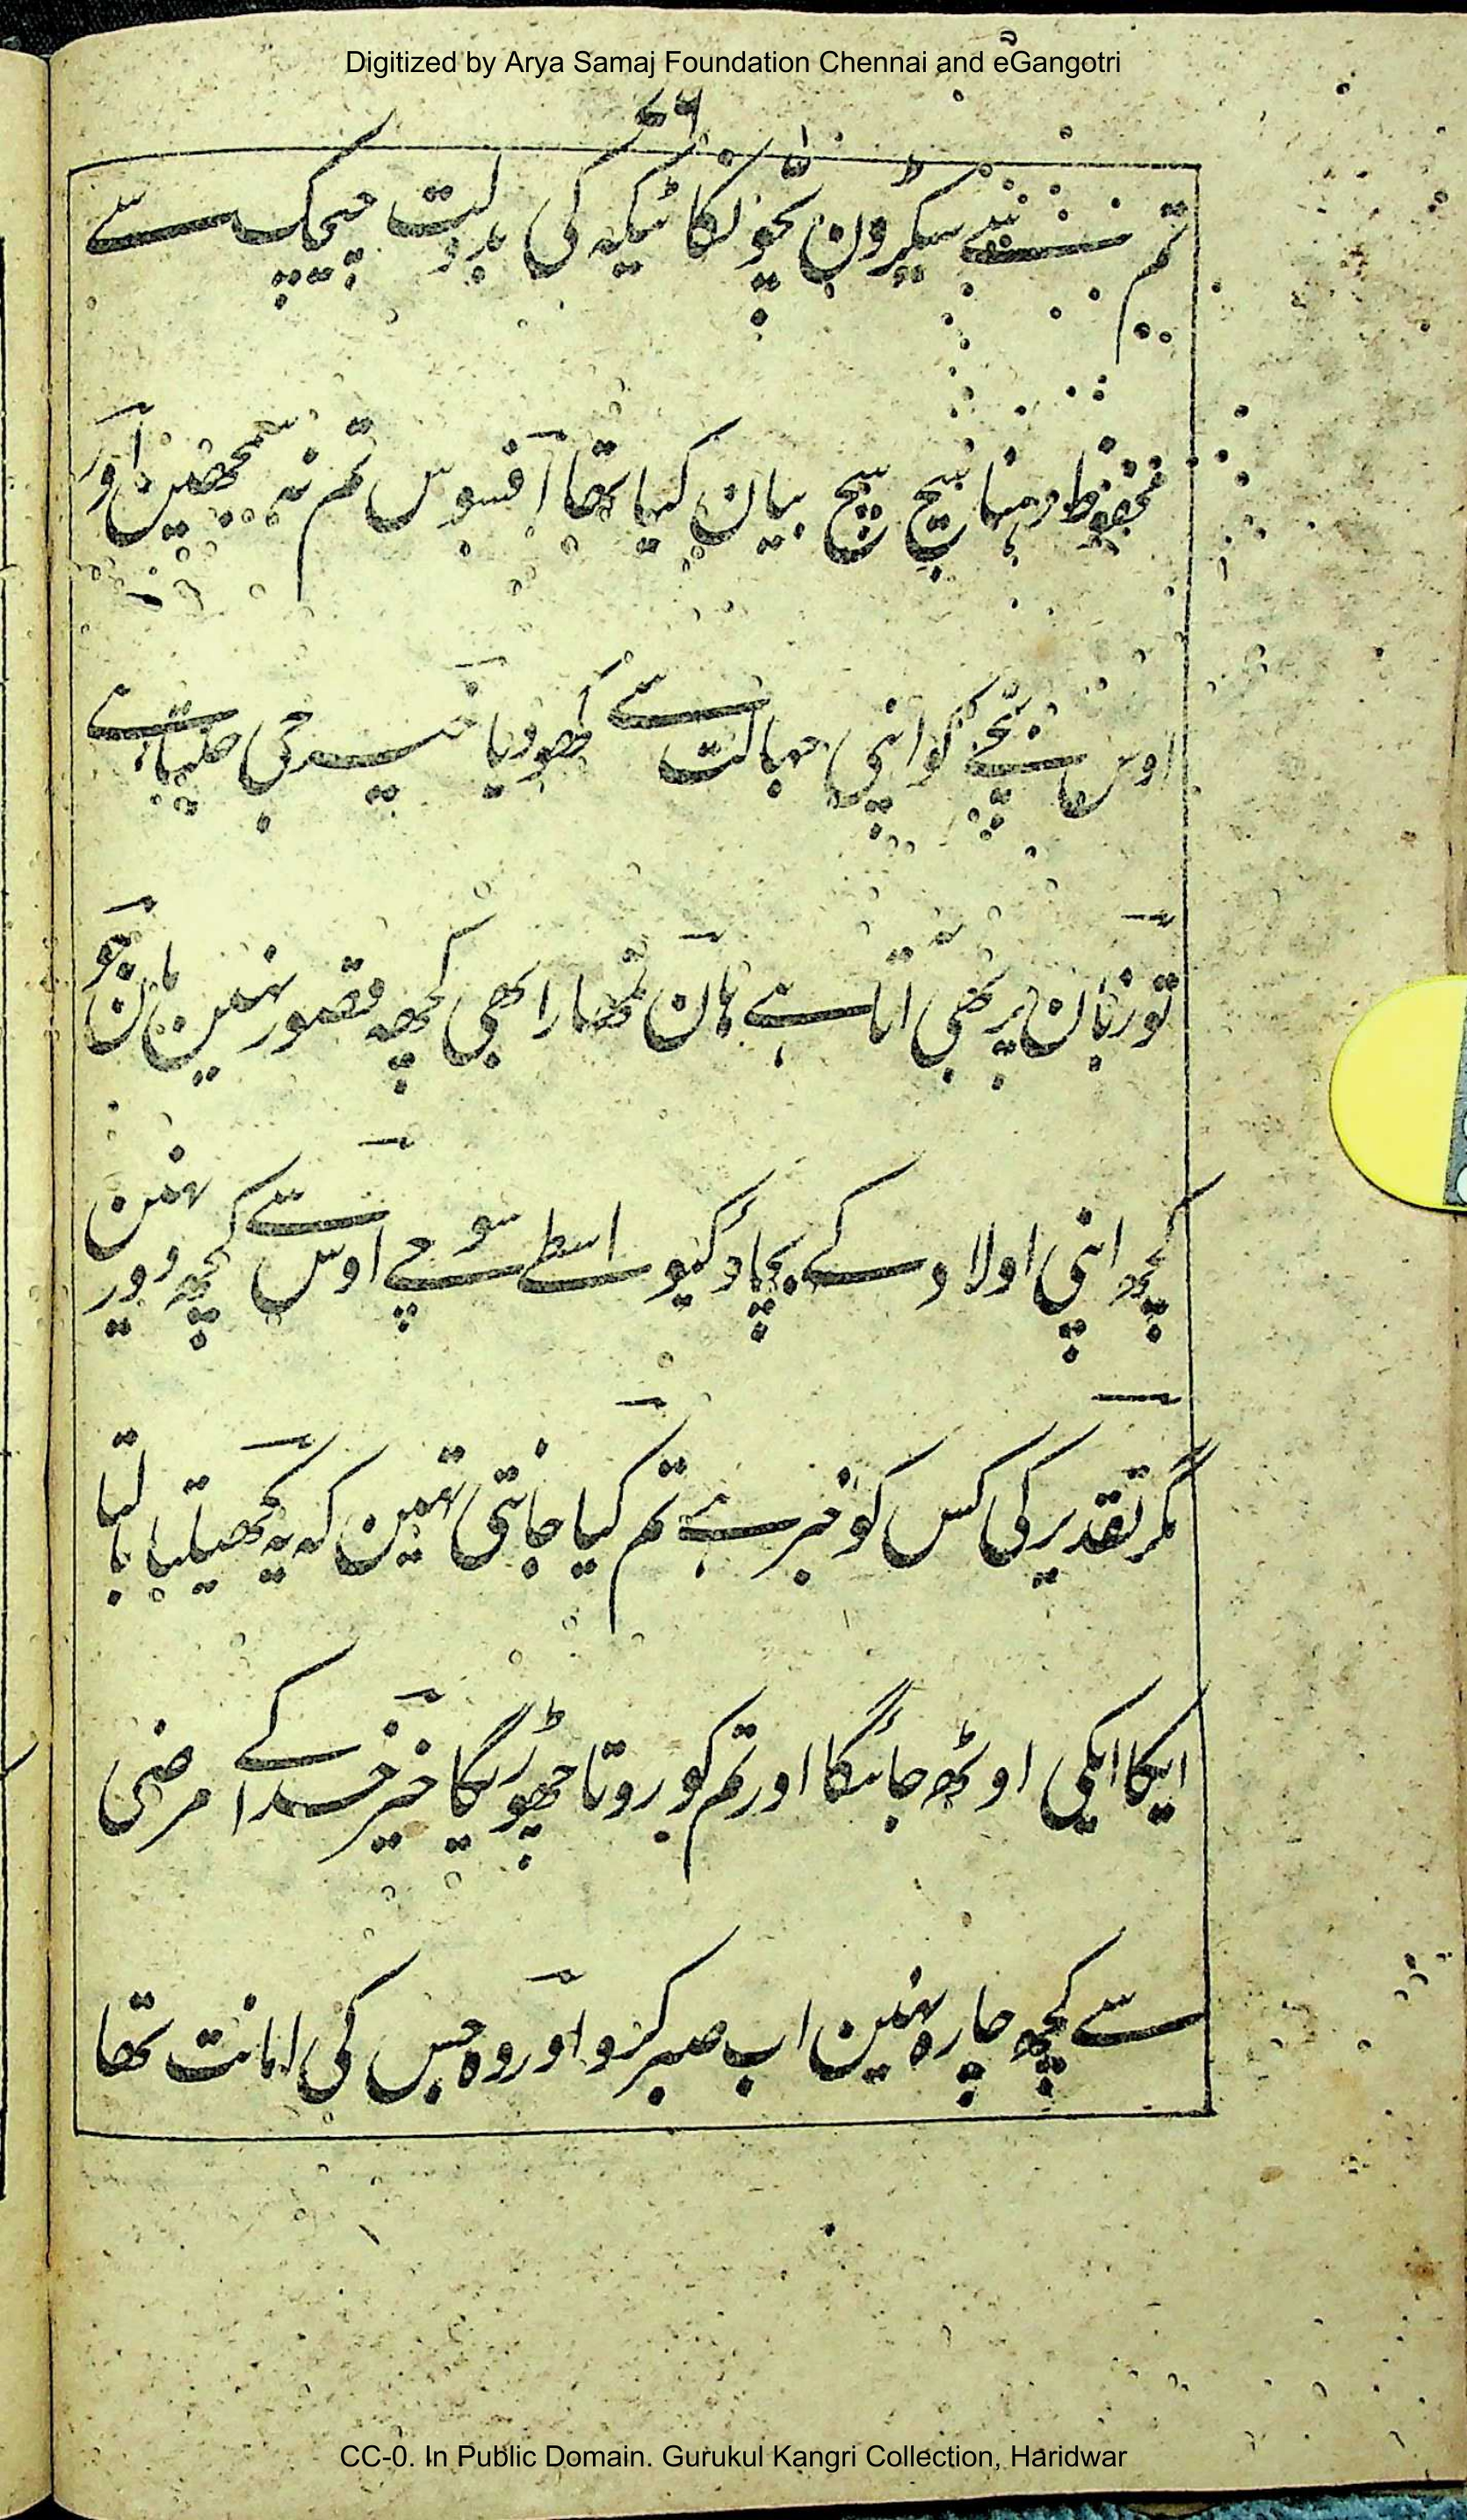 Digitized by Arya Samaj Foundation Chennai and eGangotri
٤٦
تم سے سیکڑون بچونکا ٹیکہ کی بدولت چیچک سے
محفوظ رہنا سچ سچ بیان کیا تھا افسوس تم نہ سمجھین اور
اوس بچے کو اپنی جہالت سے کھو دیا خیر جی جلتا ہے
تو زبان پر بھی آتا ہے ہان تمھارا بھی کچھ قصور نہین مان جو
کچھ اپنی اولاد کے بچاؤ کیواسطے سوچے اوس سے کچھ دور نہین
مگر تقدیر کی کس کو خبر ہے تم کیا جانتی تھین کہ یہ کھیلتا
ایکا ایکی اوٹھ جائیگا اور تم کو روتا چھوڑیگا خیر خدا کے مرضی
سے کچھ چارہ نہین اب صبر کرو اور وہ جس کی امانت تھا
CC-0. In Public Domain. Gurukul Kangri Collection, Haridwar